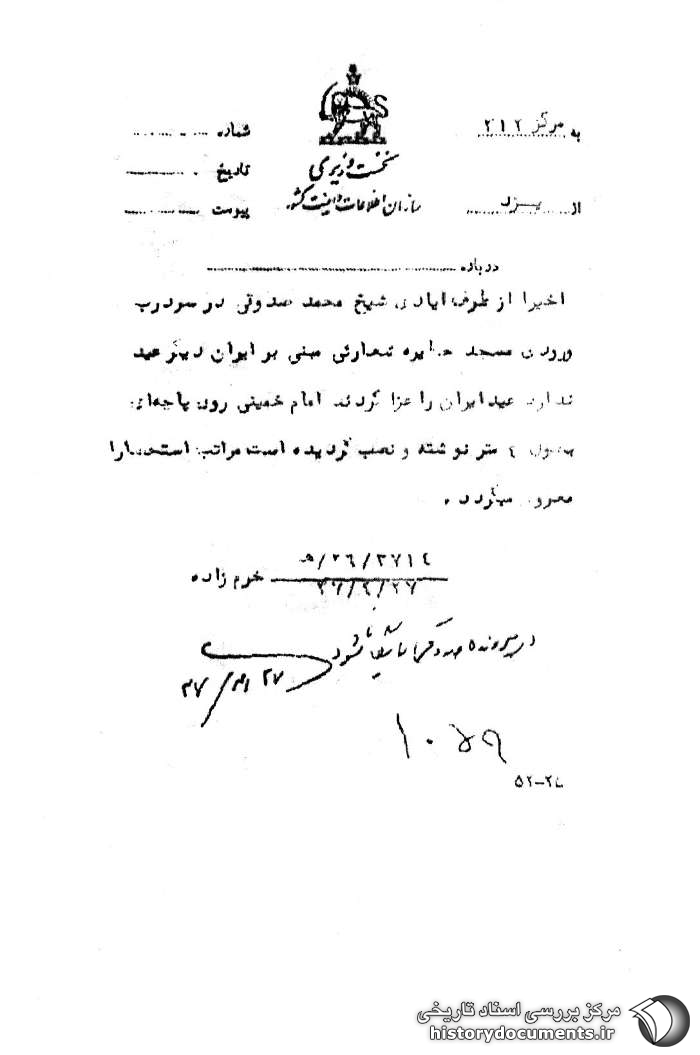 به مرکز ۲۱۲
شماره
نخست وزیری
تاریخ
سازمان اطلاعات و امنیت کشور
از یزد
پیوست
درباره
اخیرا از طرف ایادی شیخ محمد صدوقی در سردرب
ورودی مسجد حظیره شعارئی مبنی بر ایران دیگر عید
ندارد عید ایران را عزا کردند امام خمینی روی پاچه‌ای
بطول ٤ متر نوشته و نصب گردیده است مراتب استحضارا
معروض میگردد .
۲۷۱٤/۲٦/ه‍
۳٦/٤/۲۷
خرم زاده
در پرونده شود
۲۷
۳۷
۱۰۵۹
۵۲-۲۵
مرکز بررسی اسناد تاریخی
historydocuments.ir